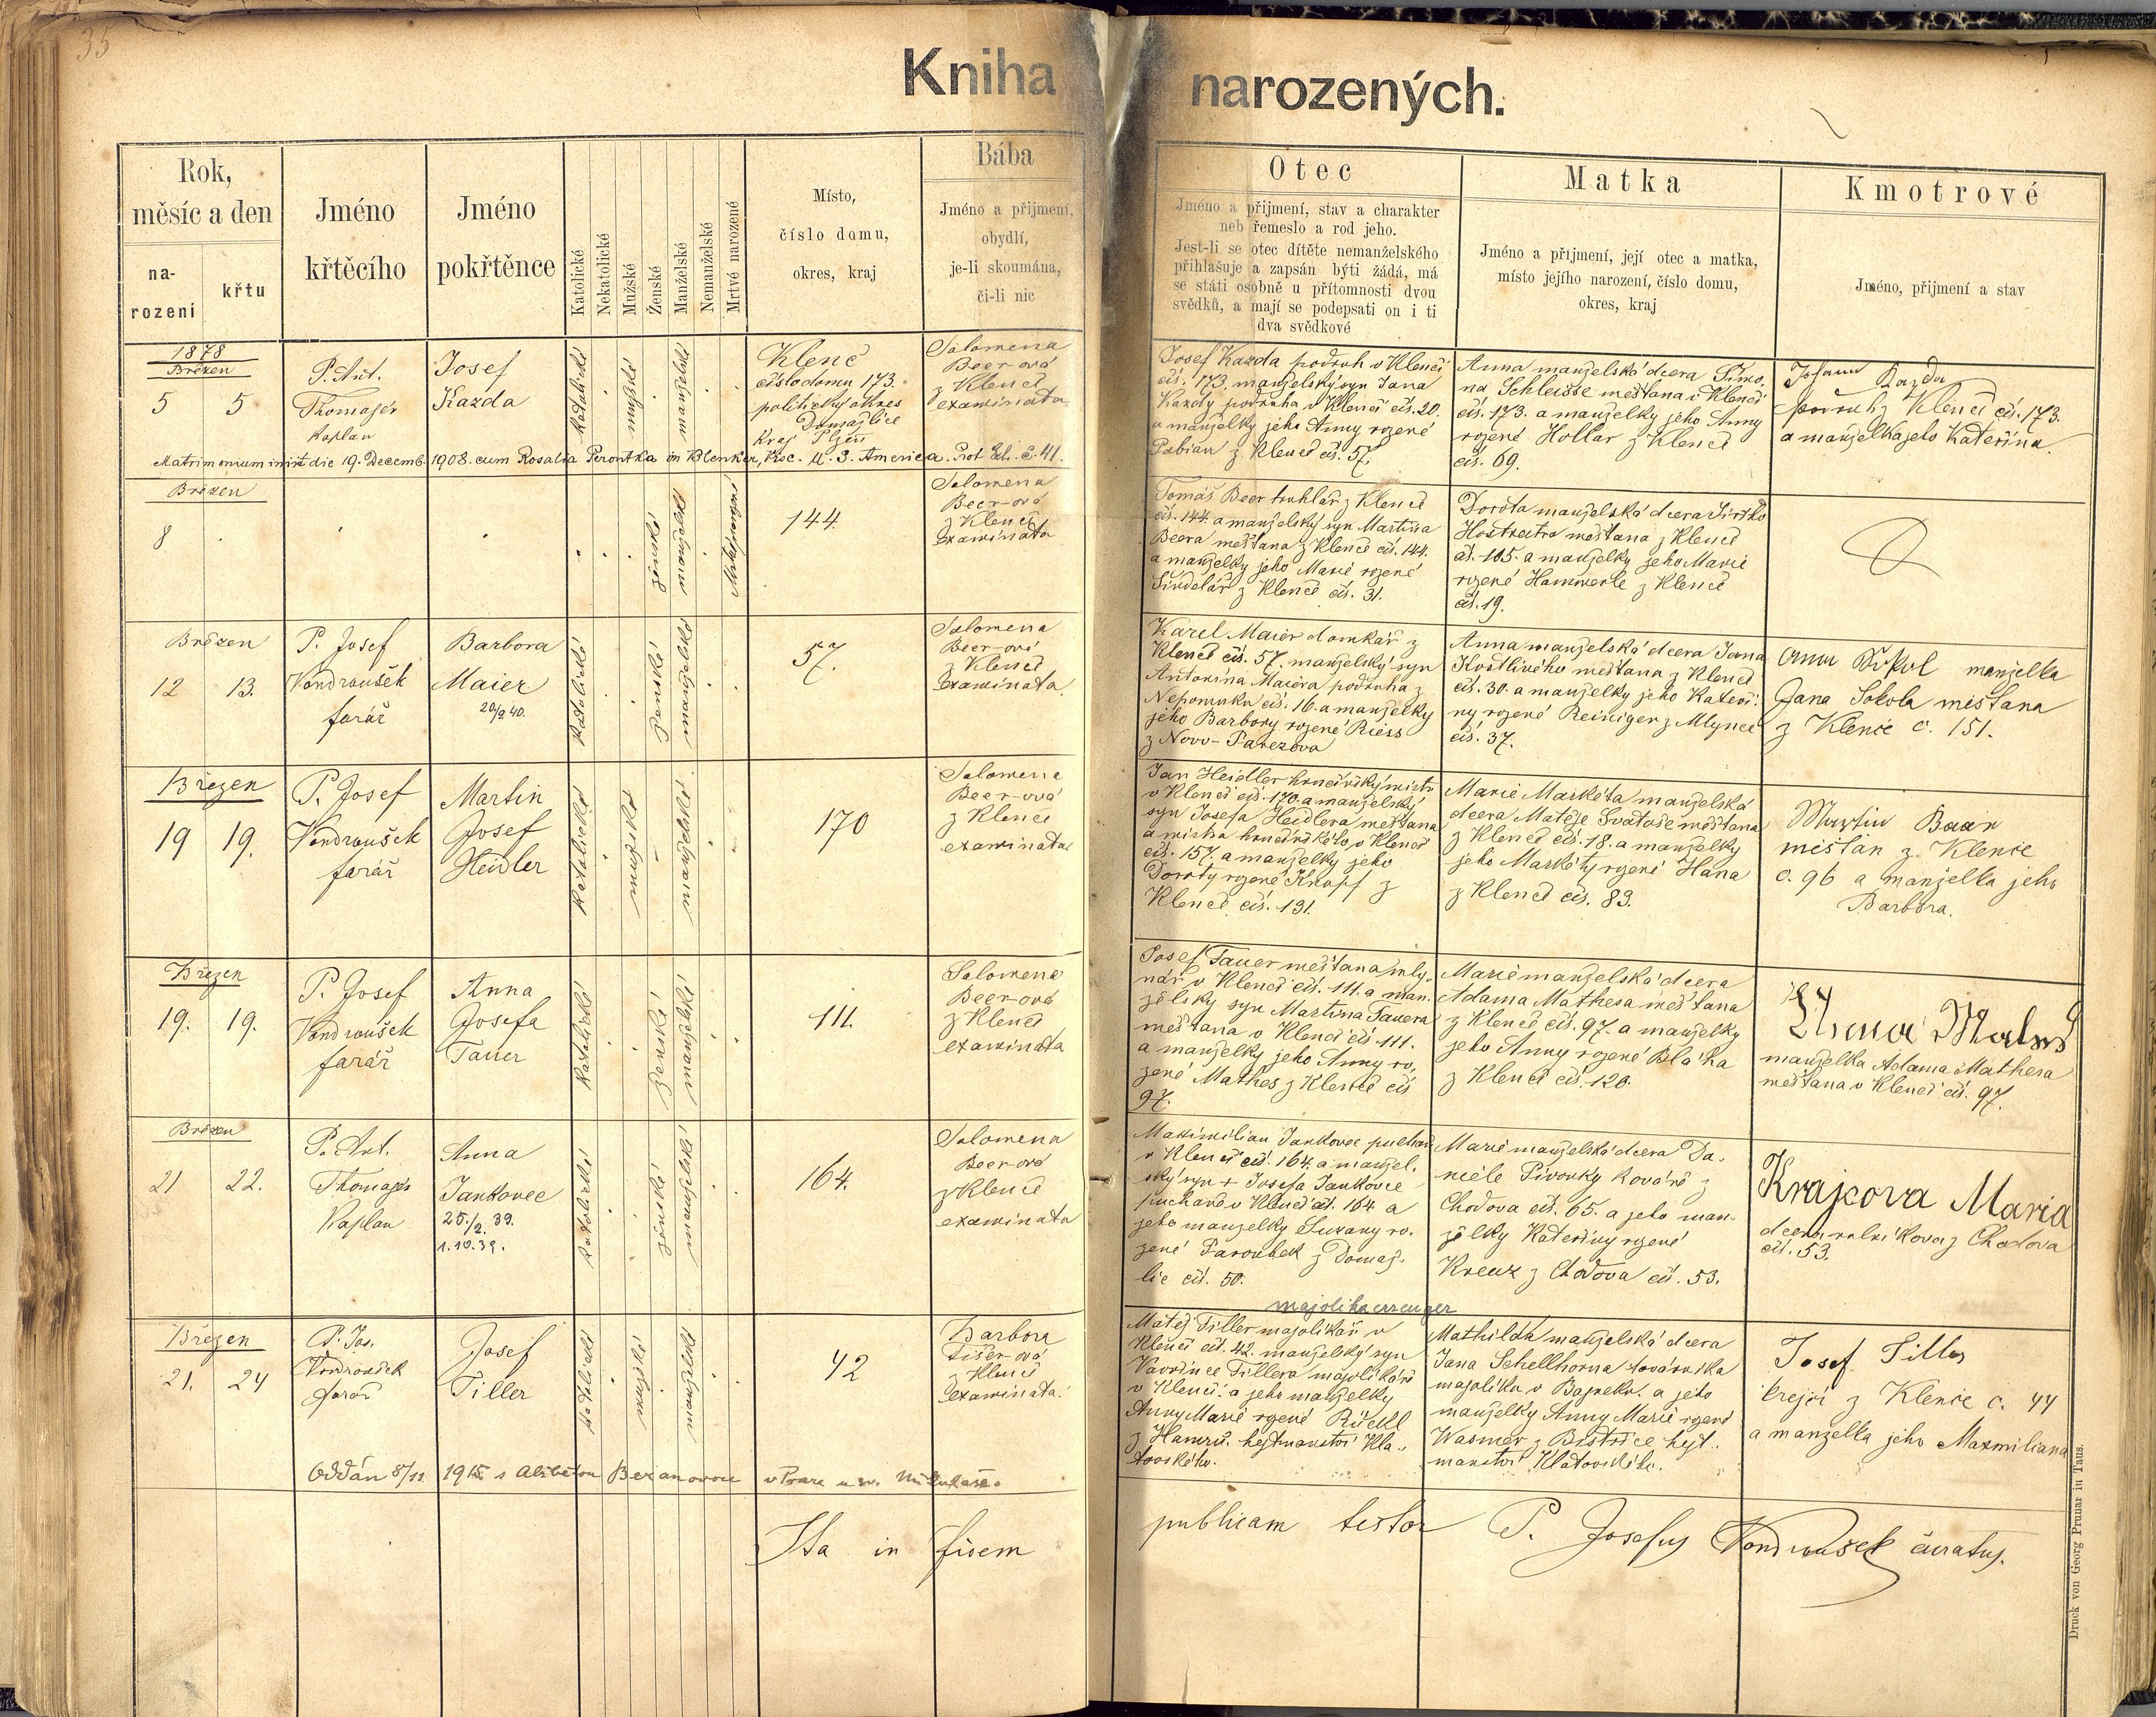 35
Kniha narozených.
Rok, měsíc a den
na-
rození
křtu
Jméno
křtěcího
Jméno
pokřtěnce
Katolické
Nekatolické
Mužské
Ženské
Manželské
Nemanželské
Mrtvé narozené
Místo,
číslo domu,
okres, kraj
Bába
Jméno a přijmení,
obydlí,
je-li skoumána,
či-li nic
Otec
Jméno a přijmení, stav a charakter
neb řemeslo a rod jeho.
Jest-li se otec dítěte nemanželského
přihlašuje a zapsán býti žádá, má
se státi osobně u přítomnosti dvou
svědků, a mají se podepsati on i ti
dva svědkové
Matka
Jméno a přijmení, její otec a matka,
místo jejího narození, číslo domu,
okres, kraj
Kmotrové
Jméno, přijmení a stav
1878
Březen
5 5
P. Ant.
Thomayer
Kaplan
Josef
Kazda
katolické
mužské
manželské
Klenč
číslo domu 173.
politický okres
Domažlice
Kraj Plzeň
Salomena
Beer-ová
z Klenče
examinata
Josef Kazda podruh v Klenči
čís. 173. manželský syn Jana
Kazdy podruha v Klenči čís. 20.
a manželky jeho Anny rozené
Fabian z Klenče čís. 57.
Anna manželská dcera Šimo-
na Schleisse měštana v Klenči
čís. 173. a manželky jeho Anny
rozené Hollar z Klenče
čís. 69.
Johann Kazda
podruh z Klenče čís. 173.
a manželka jeho Kateřina.
Matrimonium iniit die 19. Decemb. 1908. cum Rosalia Perontka in Klenker, Wisc. U. S. America. Prot Edi. č. 41.
Březen
8
ženské
manželské
Mrtvé narozené
144
Salomena
Beer-ová
z Klenče
Examinata
Tomáš Beer truhlář z Klenče
čís. 144. a manželský syn Martina
Beera měštana z Klenče čís. 144.
a manželky jeho Marie rozené
Šindelář z Klenče čís. 31.
Dorota manželská dcera Jiřího
měštana z Klenče
čís. 105. a manželky jeho Marie
rozené Hammerle z Klenče
čís. 19.
Březen
12 13.
P. Josef
Vondroušek
farář
Barbora
Maier
20/9 40.
Katolické
Ženské
manželské
57.
Salomena
Beer-ová
z Klenče
Examinata.
Karel Maier domkář z
Klenče čís. 57. manželský syn
Antonína Maiera podruha z
Nepomuku čís. 16. a manželky
jeho Barbory rozené Riess
z Novo-Pařezova
Anna manželská dcera Jana
Kostlivého měštana z Klenče
čís. 30. a manželky jeho Kateři-
ny rozené Reiniger z Mlynce
čís. 37.
Anna Sokol manželka
Jana Sokola měštana
z Klenče č. 151.
Březen
19 19.
P. Josef
Vondroušek
farář
Martin
Josef
Heidler
Katolické
mužské
manželské
170
Salomena
Beer-ová
z Klenče
examinata
Jan Heidler hrnčířský mistr
v Klenči čís. 170. a manželský
syn Josefa Heidlera měštana
a mistra hrnčířského v Klenči
čís. 157. a manželky jeho
Doroty rozené Knopf z
Klenče čís. 131.
Marie Markéta manželská
dcera Matěje Svatoše měštana
z Klenče čís. 18. a manželky
jeho Markéty rozené Hana
z Klenče čís. 83.
Martin Baar
měštan z Klenče
č. 96 a manželka jeho
Barbora.
Březen
19. 19.
P. Josef
Vondroušek
farář
Anna
Josefa
Tauer
Katolické
Ženské
manželské
111.
Salomena
Beer-ová
z Klenče
examinata
Josef Tauer měštan a mly-
nář v Klenči čís. 111. a man-
želský syn Martina Tauera
měštana v Klenči čís. 111.
a manželky jeho Anny ro-
zené Mathes z Klenče čís
97.
Marie manželská dcera
Adama Mathesa měštana
z Klenče čís. 97. a manželky
jeho Anny rozené Bláha
z Klenče čís. 120.
Anna
manželka Adama Mathesa
měštana v Klenči čís. 97.
Březen
21 22.
P. Ant.
Thomayer
Kaplan
Anna
Jankovec
25./2. 39.
1.10.39.
Katolické
ženské
manželské
164.
Salomena
Beer-ová
z Klenče
examinata
Maximilian Jankovec puchař
v Klenči čís. 164. a manžel-
ský syn + Josefa Jankovce
puchaře v Klenči čís. 164. a
jeho manželky Zuzany ro-
zené Paroubek z Domaž-
lic čís. 50.
Marie manželská dcera Da-
niele Pivoňky kováře z
Chodova čís. 65. a jeho man-
želky Kateřiny rozené
Kreuz z Chodova čís. 53.
Krajcova Maria
dcera z Chodova
čís. 53.
Březen
21. 24
P. Jos.
Vondroušek
farář
Josef
Tiller
Katolické
mužské
manželské
42
Barbora
Fišer-ová
z Klenče
examinata.
majolikaerzeuger
Matěj Tiller majolikář v
Klenči čís. 42. manželský syn
Vavřince Tillera majolikáře
v Klenči a jeho manželky
Anny Marie rozené Rückl
z Hamrů hejtmanství Kla-
tovského.
Mathilda manželská dcera
Jana Schellhorna továrníka
majoliku v Bayreku a jeho
manželky Anny Marie rozené
Wasmer z Bistřice hejt-
manství Klatovského.
Josef Tiller
krejčí z Klenče č. 44
a manzelka jeho Maxmiliana
Oddán 8/11. 1915 s Alžbětou Beranovou v Praze u sv. Mikuláše.
Ita in fidem publicam testor P. Josefus Vondroušek curatus.
Druck von Georg Prunar in Taus.